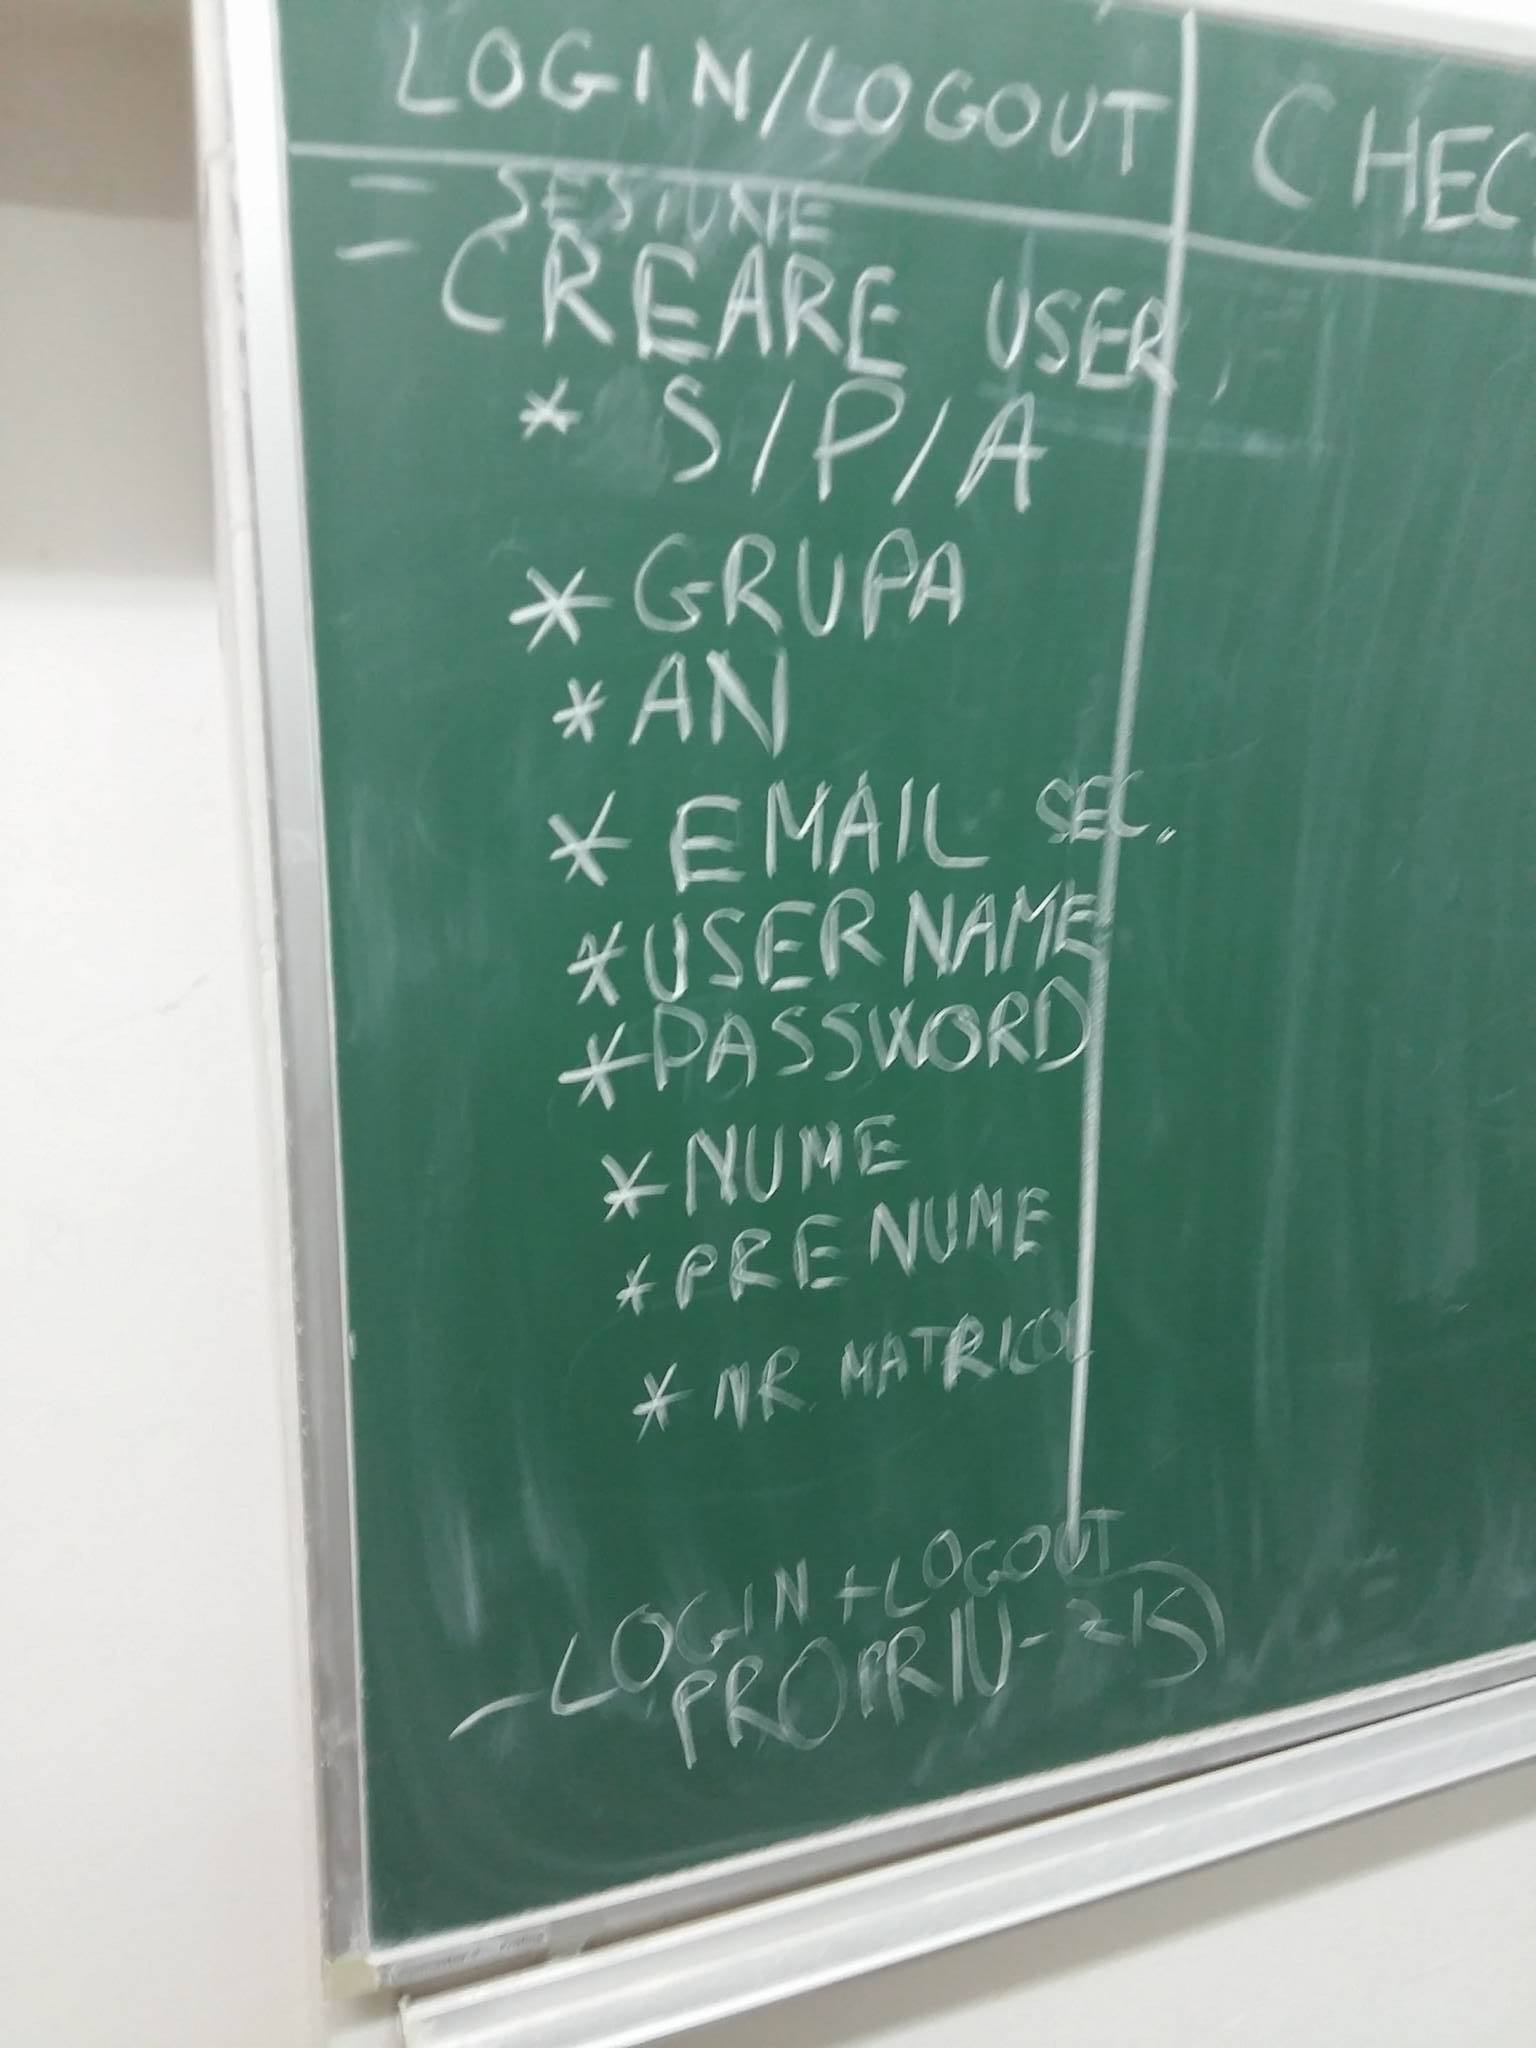 LOGIN/LOGOUT
CHEC
- SESIUNE
- CREARE USER
* S/P/A
* GRUPA
* AN
* EMAIL SEC.
* USERNAME
* PASSWORD
* NUME
* PRENUME
* NR. MATRICOL
- LOGIN + LOGOUT
PROPRIU-ZIS